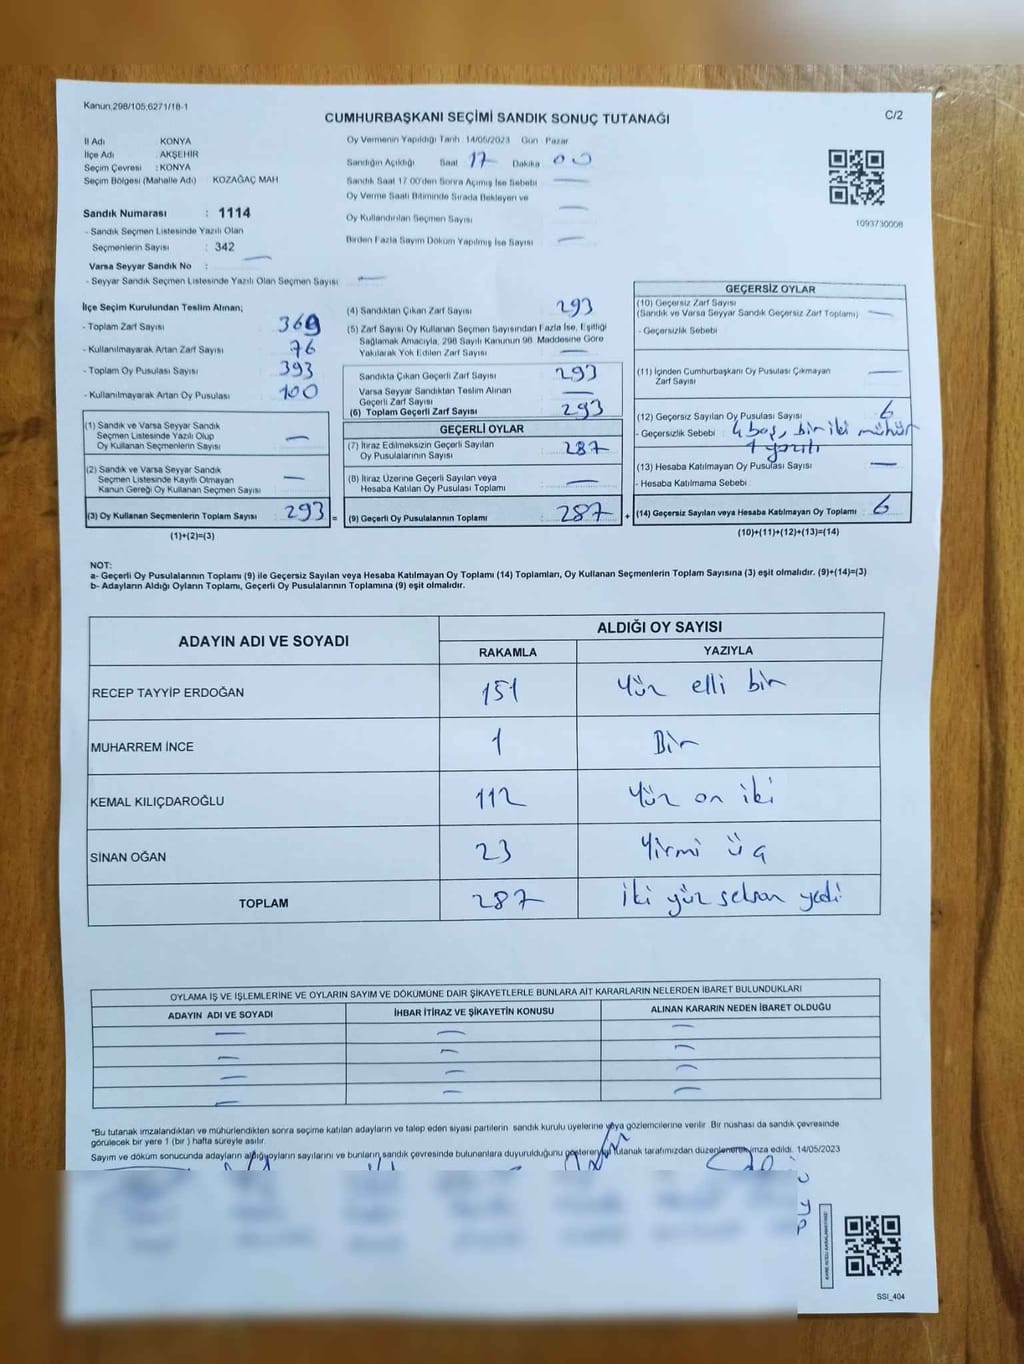 Kanun;298/105;6271/18-1
CUMHURBAŞKANI SEÇİMİ SANDIK SONUÇ TUTANAĞI
C/2
İl Adı : KONYA
İlçe Adı : AKŞEHİR
Seçim Çevresi : KONYA
Seçim Bölgesi (Mahalle Adı) KOZAĞAÇ MAH
Sandık Numarası : 1114
- Sandık Seçmen Listesinde Yazılı Olan
Seçmenlerin Sayısı : 342
Varsa Seyyar Sandık No : —
- Seyyar Sandık Seçmen Listesinde Yazılı Olan Seçmen Sayısı —
Oy Vermenin Yapıldığı Tarih 14/05/2023 Gün Pazar
Sandığın Açıldığı Saat 17 Dakika 00
Sandık Saat 17 00'den Sonra Açılmış İse Sebebi —
Oy Verme Saati Bitiminde Sırada Bekleyen ve
Oy Kullandırılan Seçmen Sayısı —
Birden Fazla Sayım Döküm Yapılmış İse Sayısı —
1093730008
İlçe Seçim Kurulundan Teslim Alınan;
- Toplam Zarf Sayısı 369
- Kullanılmayarak Artan Zarf Sayısı 76
- Toplam Oy Pusulası Sayısı 393
- Kullanılmayarak Artan Oy Pusulası 100
(1) Sandık ve Varsa Seyyar Sandık
Seçmen Listesinde Yazılı Olup
Oy Kullanan Seçmenlerin Sayısı —
(2) Sandık ve Varsa Seyyar Sandık
Seçmen Listesinde Kayıtlı Olmayan
Kanun Gereği Oy Kullanan Seçmen Sayısı —
(3) Oy Kullanan Seçmenlerin Toplam Sayısı 293 =
(1)+(2)=(3)
(4) Sandıktan Çıkan Zarf Sayısı 293
(5) Zarf Sayısı Oy Kullanan Seçmen Sayısından Fazla İse, Eşitliği
Sağlamak Amacıyla, 298 Sayılı Kanunun 98. Maddesine Göre
Yakılarak Yok Edilen Zarf Sayısı —
Sandıkta Çıkan Geçerli Zarf Sayısı 293
Varsa Seyyar Sandıktan Teslim Alınan
Geçerli Zarf Sayısı —
(6) Toplam Geçerli Zarf Sayısı 293
GEÇERLİ OYLAR
(7) İtiraz Edilmeksizin Geçerli Sayılan
Oy Pusulalarının Sayısı 287
(8) İtiraz Üzerine Geçerli Sayılan veya
Hesaba Katılan Oy Pusulası Toplamı —
(9) Geçerli Oy Pusulalarının Toplamı 287 +
GEÇERSİZ OYLAR
(10) Geçersiz Zarf Sayısı
(Sandık ve Varsa Seyyar Sandık Geçersiz Zarf Toplamı) —
- Geçersizlik Sebebi
(11) İçinden Cumhurbaşkanı Oy Pusulası Çıkmayan
Zarf Sayısı —
(12) Geçersiz Sayılan Oy Pusulası Sayısı 6
- Geçersizlik Sebebi : 4 boş, bir iki mühür
1 yazılı
(13) Hesaba Katılmayan Oy Pusulası Sayısı —
- Hesaba Katılmama Sebebi :
(14) Geçersiz Sayılan veya Hesaba Katılmayan Oy Toplamı 6
(10)+(11)+(12)+(13)=(14)
NOT:
a- Geçerli Oy Pusulalarının Toplamı (9) ile Geçersiz Sayılan veya Hesaba Katılmayan Oy Toplamı (14) Toplamları, Oy Kullanan Seçmenlerin Toplam Sayısına (3) eşit olmalıdır. (9)+(14)=(3)
b- Adayların Aldığı Oyların Toplamı, Geçerli Oy Pusulalarının Toplamına (9) eşit olmalıdır.
ADAYIN ADI VE SOYADI
ALDIĞI OY SAYISI
RAKAMLA YAZIYLA
RECEP TAYYİP ERDOĞAN 151 Yüz elli bir
MUHARREM İNCE 1 Bir
KEMAL KILIÇDAROĞLU 112 Yüz on iki
SİNAN OĞAN 23 Yirmi üç
TOPLAM 287 İki yüz seksen yedi
OYLAMA İŞ VE İŞLEMLERİNE VE OYLARIN SAYIM VE DÖKÜMÜNE DAİR ŞİKAYETLERLE BUNLARA AİT KARARLARIN NELERDEN İBARET BULUNDUKLARI
ADAYIN ADI VE SOYADI İHBAR İTİRAZ VE ŞİKAYETİN KONUSU ALINAN KARARIN NEDEN İBARET OLDUĞU
— — —
— — —
— — —
— — —
*Bu tutanak imzalandıktan ve mühürlendikten sonra seçime katılan adayların ve talep eden siyasi partilerin sandık kurulu üyelerine veya gözlemcilerine verilir. Bir nüshası da sandık çevresinde
görülecek bir yere 1 (bir ) hafta süreyle asılır.
Sayım ve döküm sonucunda adayların aldığı oyların sayılarını ve bunların sandık çevresinde bulunanlara duyurulduğunu gösteren bu tutanak tarafımızdan düzenlenerek imza edildi. 14/05/2023
SSI_404